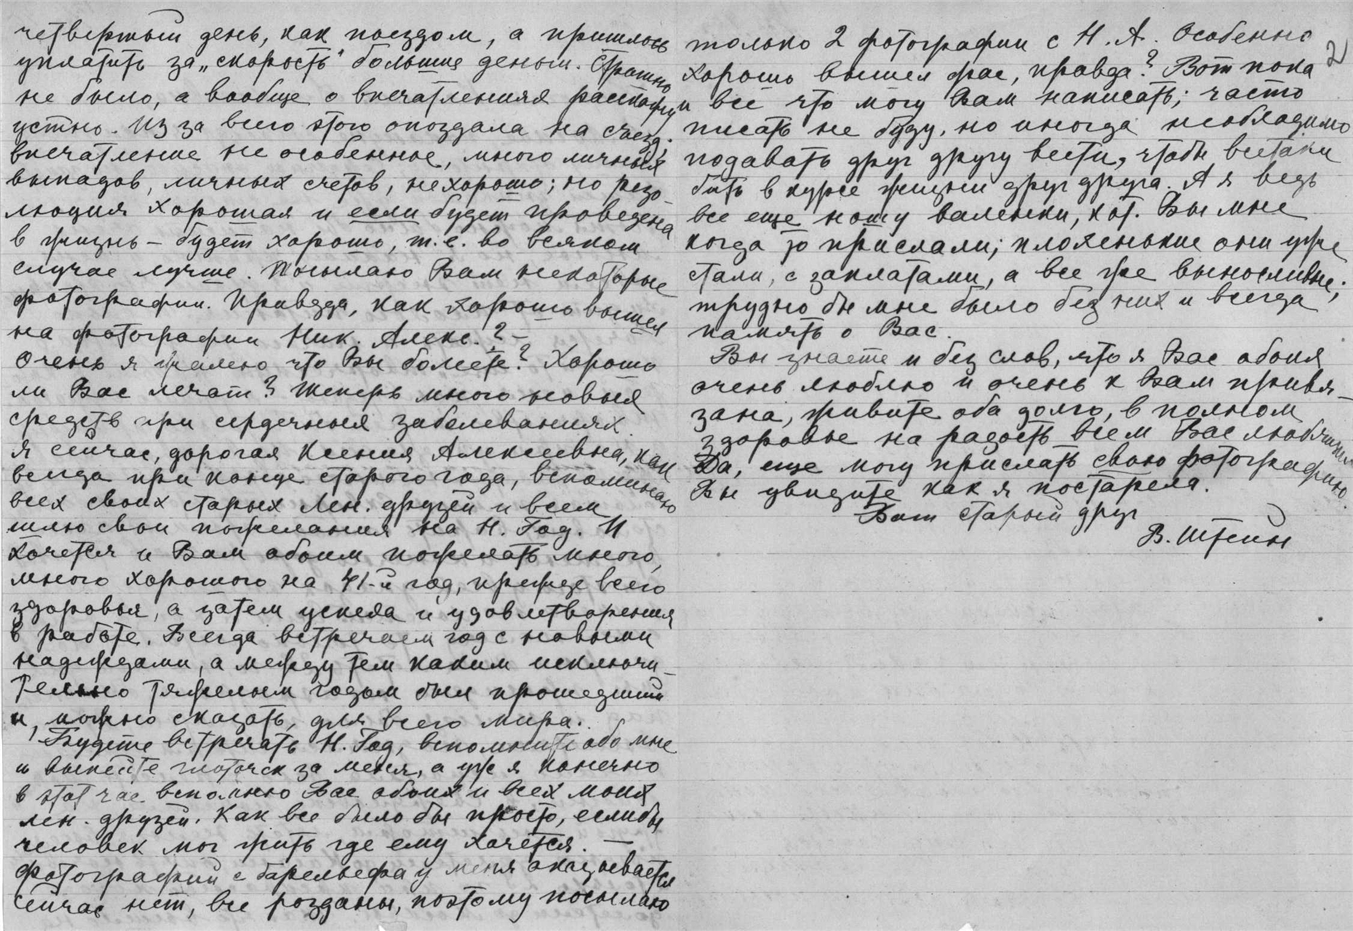 четвертый день, как поездом, а пришлось
уплатить за „скорость" большие деньги. Страшно
не было, а вообще о впечатлениях расскажу
устно. Из за всего этого опоздала на съезд;
впечатление не особенное, много личных
выпадов, личных счетов, нехорошо; но резо-
люция хорошая и если будет проведена
в жизнь – будет хорошо, т.е. во всяком
случае лучше. Посылаю Вам некоторые
фотографии. Правда, как хорошо вышел
на фотографии Ник. Алекс.? –
Очень я жалею что Вы болеете? Хорошо
ли Вас лечат? Теперь много новых
средств при сердечных заболеваниях.
Я сейчас, дорогая Ксения Алексеевна, как
всегда при конце старого года, вспоминаю
всех своих старых Лен. друзей и всем
шлю свои пожелания на Н. Год. И
хочется и Вам обоим пожелать много,
много хорошего на 41-й год, прежде всего
здоровья, а затем успеха и удовлетворения
в работе. Всегда встречаем год с новыми
надеждами, а между тем каким исключи-
тельно тяжелым годом был прошедший
и, можно сказать, для всего мира.
Будете встречать Н. Год, вспомните обо мне
и выпейте глоточек за меня, а уж я конечно
в этот час вспомню Вас обоих и всех моих
лен. друзей. Как все было бы просто, еслибы
человек мог жить где ему хочется. —
Фотографий с барельефа у меня оказывается
сейчас нет, все розданы, поэтому посылаю
2
только 2 фотографии с Н. А. Особенно
хорошо вышел фас, правда? Вот пока
и всё что могу Вам написать; часто
писать не буду, но иногда необходимо
подавать друг другу вести, чтобы всетаки
быть в курсе жизни друг друга. А я ведь
все еще ношу валенки, кот. Вы мне
когда то прислали; плохенькие они уже
стали, с заплатами, а все же выносливые;
трудно бы мне было без них и всегда
память о Вас.
Вы знаете и без слов, что я Вас обоих
очень люблю и очень к Вам привя-
зана, живите оба долго, в полном
здоровье на радость всем Вас любящим
Да, еще могу прислать свою фотографию
Вы увидите как я постарела.
Ваш старый друг
В. Штейн